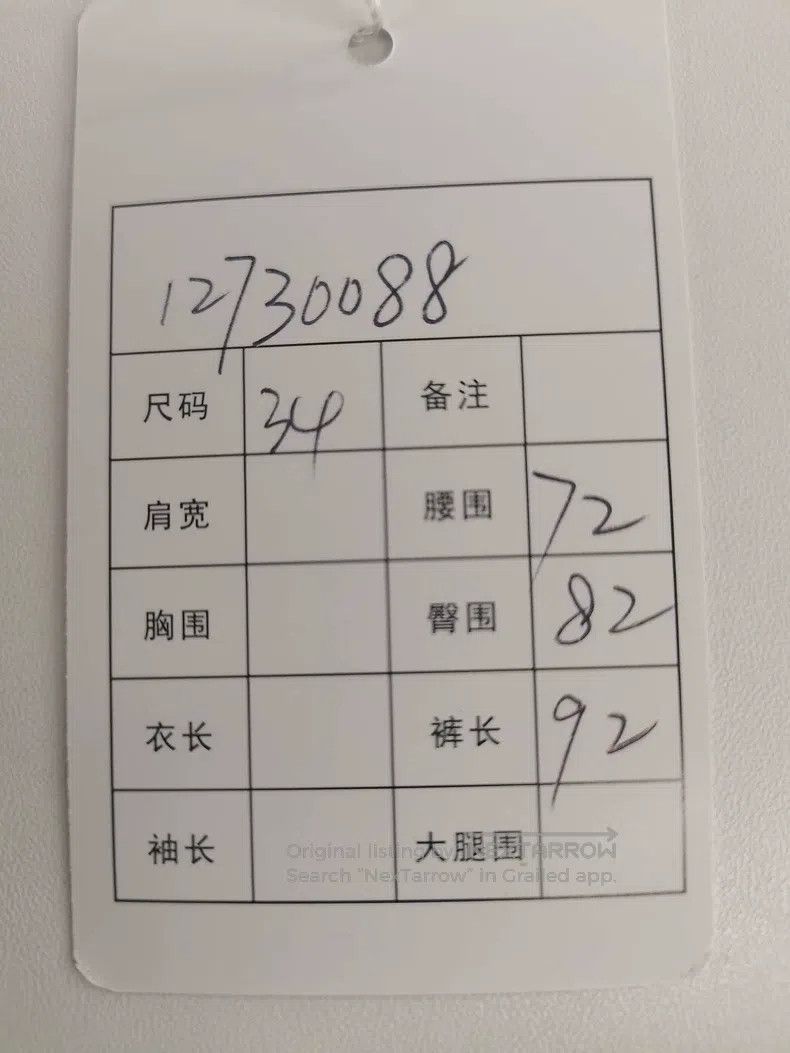 12730088
尺码 34 备注
肩宽 腰围 72
胸围 臀围 82
衣长 裤长 92
袖长 大腿围
Original listing by NEXTARROW
Search "NexTarrow" in Grailed app.